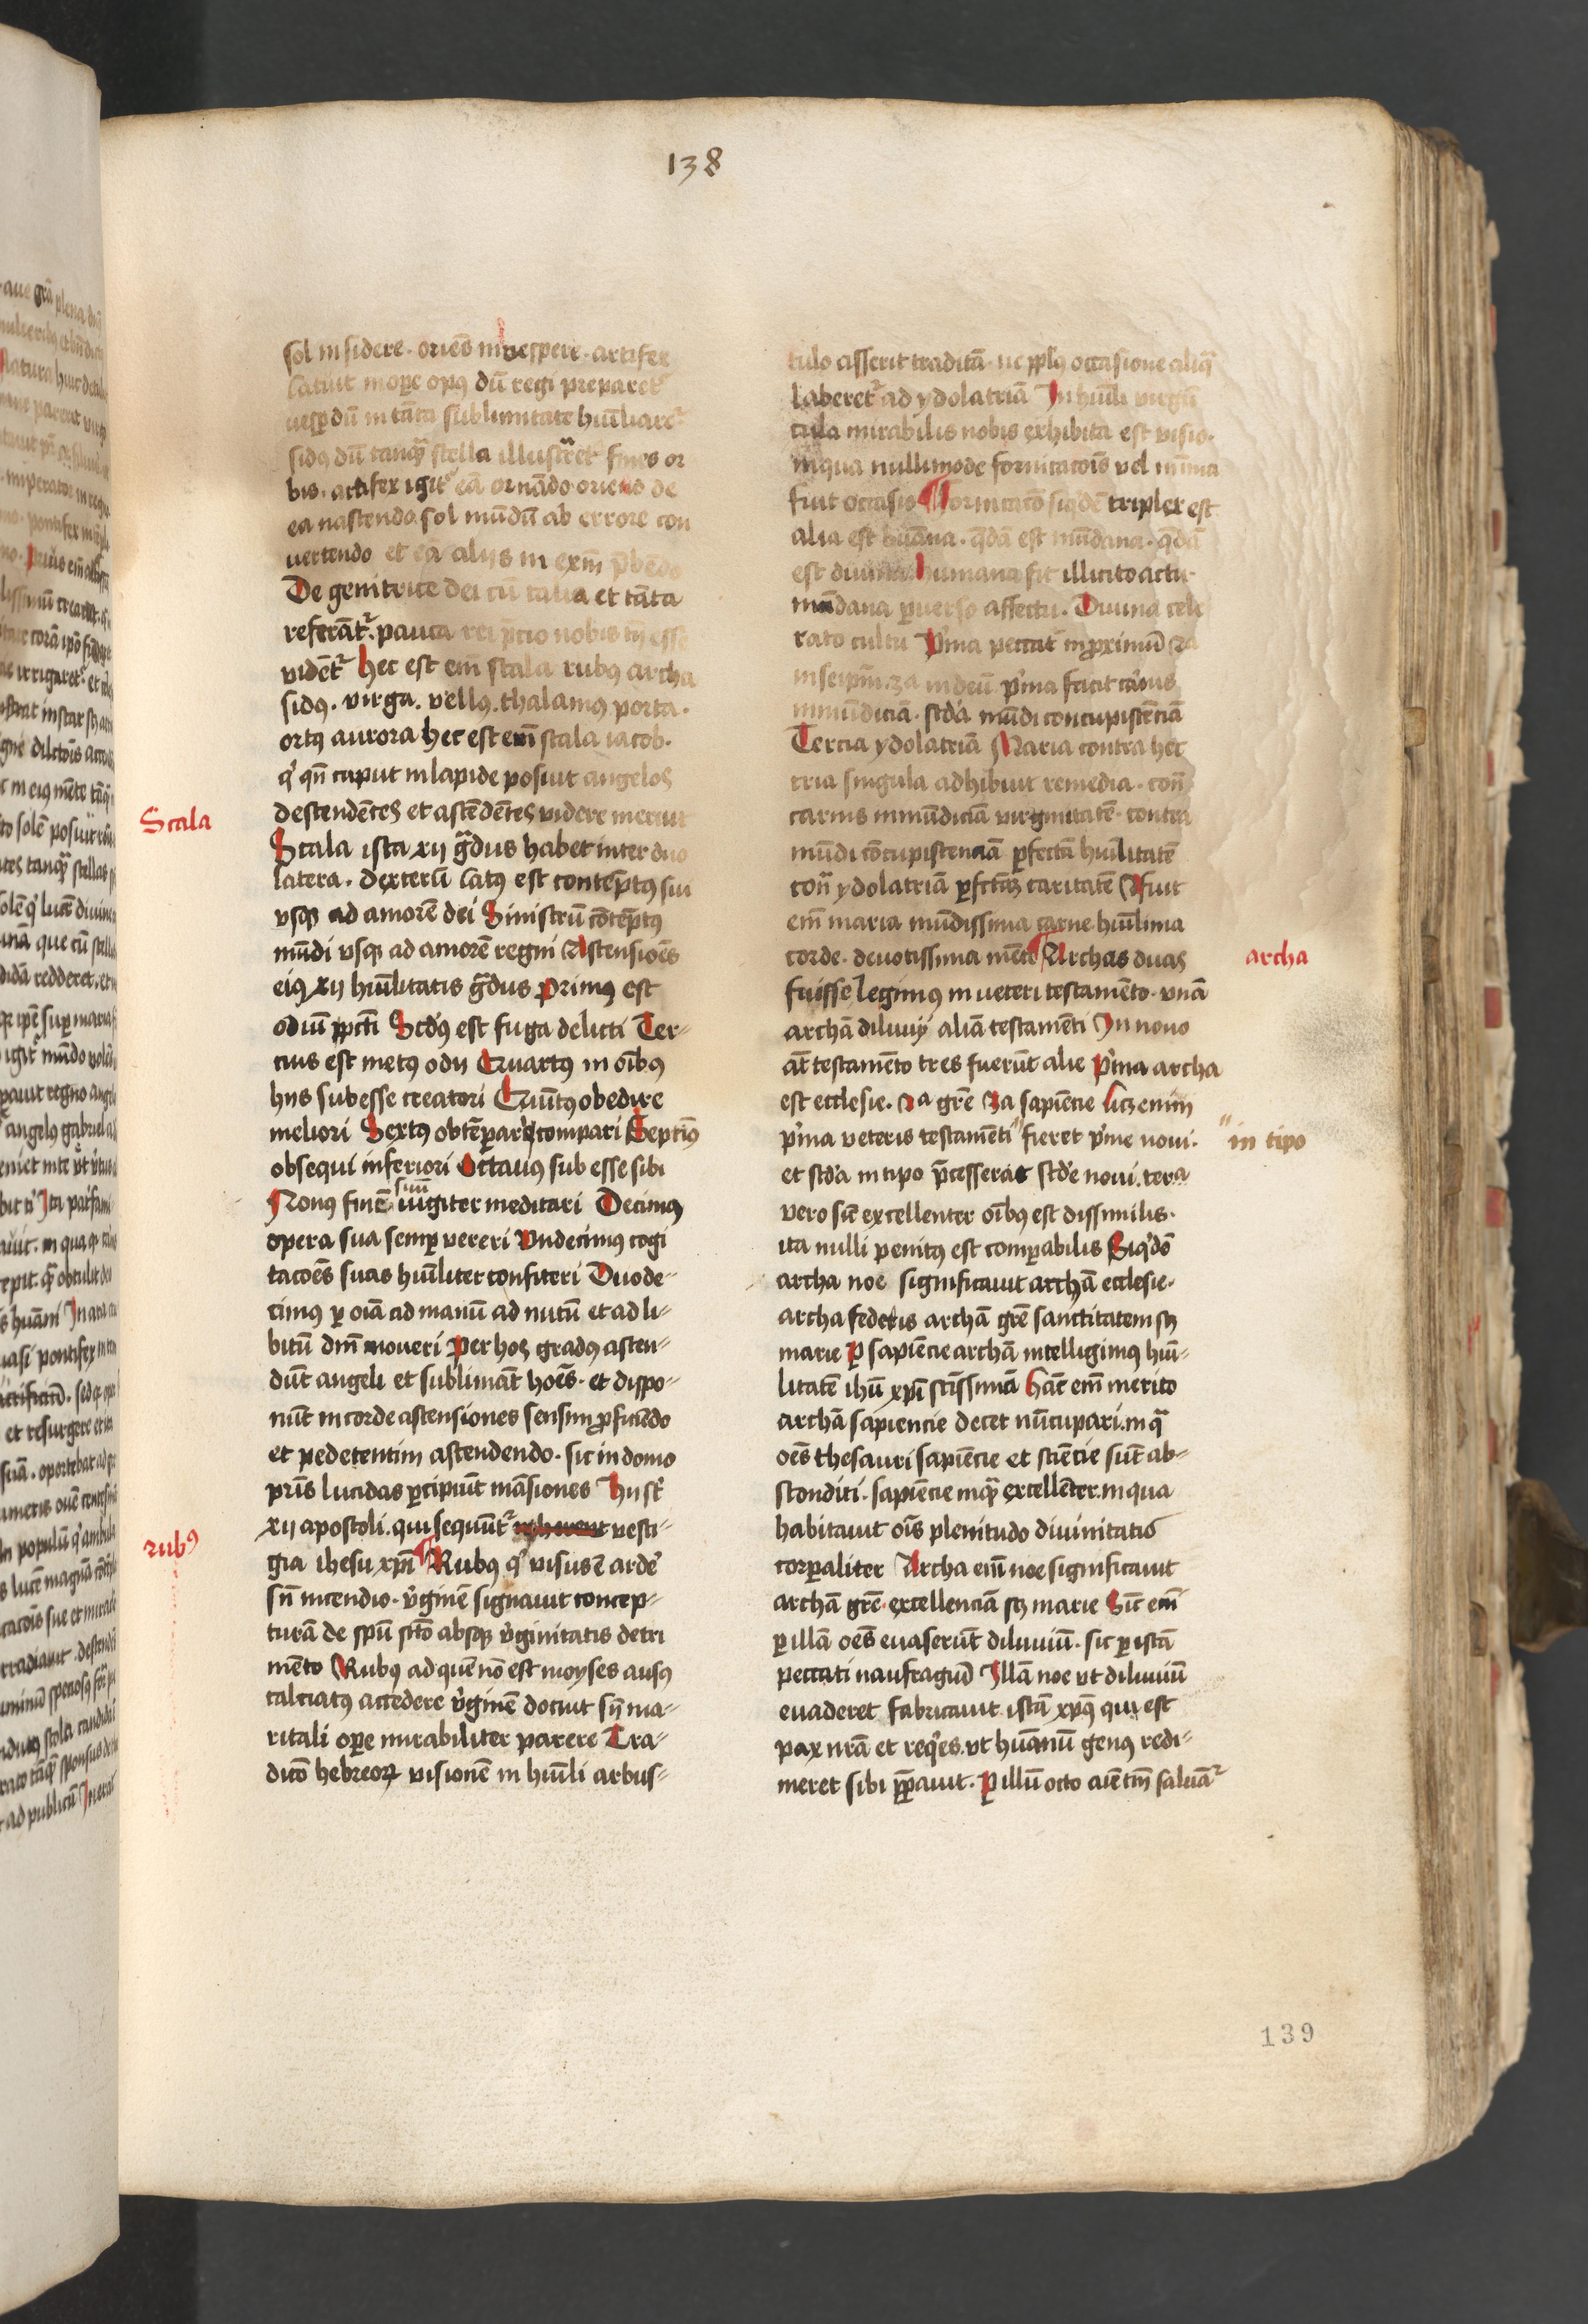 138
sol in sidere · oriēs in vespere · artifex
latuit in oꝑe opꝰ dū regi preparet᷑
uesꝑ dū in tāta sublimitate hūiliaret᷑
sidꝰ dū tanqͣ stella illustͣret fines or
bis · artifex igit᷑ eā ornādo · oriens de
ea nascendo sol mūdū ab errore con
uertendo et eā aliis in exm̄ p̄bēdo
De genitrice dei cū talia et tāta
referāt᷑ · pauca rei p̄cio nobis tn̄ esse
vidēt᷑ hec est em̄ scala rubꝰ archa
sidꝰ · virga · vellꝰ · thalamꝰ porta ·
ortꝰ aurora hec est em̄ scala iacob ·
qͥ qn̄ caput in lapide posuit angelos
descendētes et ascēdētes videre meruit
Scala
Scala ista xij gͣdus habet inter duo
latera · dexterū latꝰ est contēptꝰ sui
vsqꝫ ad amorē dei Sinistrū cōtēptꝰ
mūdi vsqꝫ ad amorē regni Ascensiōes
eiꝰ xij hūilitatis gͣdus Primꝰ est
odiū pcc̄ti Scdꝰ est fuga delicti Ter-
cius est metꝰ odij Quartꝰ in oībꝰ
hijs subesse creatori Quītꝰ obedire
meliori Sextꝰ obtēꝑare compari Septimꝰ
obsequi inferiori Octauꝰ sub esse sibi
Nonꝰ finē suū iugiter meditari Decimꝰ
opera sua semꝑ vereri Vndecimꝰ cogi
tacōes suas hūiliter confiteri Duode-
cimꝰ ꝑ oīa ad manū ad nutū et ad li-
bitū dn̄i moueri Per hos gradꝰ ascen-
dūt angeli et sublimāt hoēs · et dispo-
nūt in corde ascensiones sensim ꝓficiēdo
et pedetentim ascendendo · sic in domo
pr̄is lucidas ꝑcipiūt māsiones Hij sūt
xij apostoli · qui sequūt᷑ vesti-
rubꝰ
gia ihesu xp̄i Rubꝰ qͥ visus ē ardeˀ
sn̄ incendio · v̓ginē signauit concep-
turā de spū scō absqꝫ v̓ginitatis detri
mēto Rubꝰ ad quē nō est moyses ausꝰ
calciatꝰ accedere v̓ginē docuit sn̄ ma-
ritali oꝑe mirabiliter parere Tra-
dicō hebreoꝝ visionē in hūili arbus-
tulo asserit traditā · ne ppl̄ꝰ occasione aliqͣ
laberet᷑ ad ydolatriā In hūili virgū
cula mirabilis nobis exhibita est visio ·
in qua nullimode fornicacōis vel minima
fuit occasio Fornicacō siqͥdē triplex est
alia est huāna · qͥdā est mūdana · qͥdā
est diuina humana fit illicito actu ·
mūdana ꝑuerso affectu · Diuina cele
rato cultu Pͥma peccat in proximū 2a
in seipm̄ · 3a in deū pͥma facit carnis
inmūdiciā · scd̓a mūdi concupiscēciā
Tercia ydolatriā Maria contra hec
tria singula adhibuit remedia · contͣ
carnis inmūdiciā virginitatē · contra
mūdi cōcupiscenciā ꝑfectā hūilitatē
contͣ ydolatriā ꝑfectā caritatē Fuit
em̄ maria mūdissima carne hūilima
corde · deuotissima mēte Archas duas
archa
fuisse legimꝰ in veteri testamēto · vnā
archā diluuij aliā testamēti In nouo
aūt testamēto tres fuerūt alie pͥma archa
est ecclesie · 2a grē 3a sapiēcie licꝫ enim
pͥma veteris testamēti " fieret pͥme noui ·
" in tipo
et scd̓a in tipo p̄cesserat scd̓e noui · tercia
vero sic̄ excellenter oībꝰ est dissimilis ·
ita nulli penitꝰ est comꝑabilis Siqͥdē
archa noe significauit archā ecclesie ·
archa federis archā grē sanctitatem scꝫ
marie Per sapiēcie archā intelligimꝰ hūi-
litatē ihū xp̄i sctīssimā Hāc em̄ merito
archā sapiencie decet nūcupari · in qͣ
oēs thesauri sapiēcie et sciēcie sūt ab-
sconditi · sapiēcie inqͣ excellēter · in qua
habitauit oīs plenitudo diuinitatis
corꝑaliter Archa em̄ noe significauit
archā grē · excellenciā scꝫ marie Sic̄ em̄
ꝑ illā oēs euaserūt diluuiū · sic ꝑ istā
peccati naufragiū Illā noe vt diluuiū
euaderet fabricauit istā xpꝰ qui est
pax nr̄a et reqͥes · vt huānū genꝰ redi-
meret sibi pꝑauit · Per illū octo aīe tm̄ saluāt᷑
139